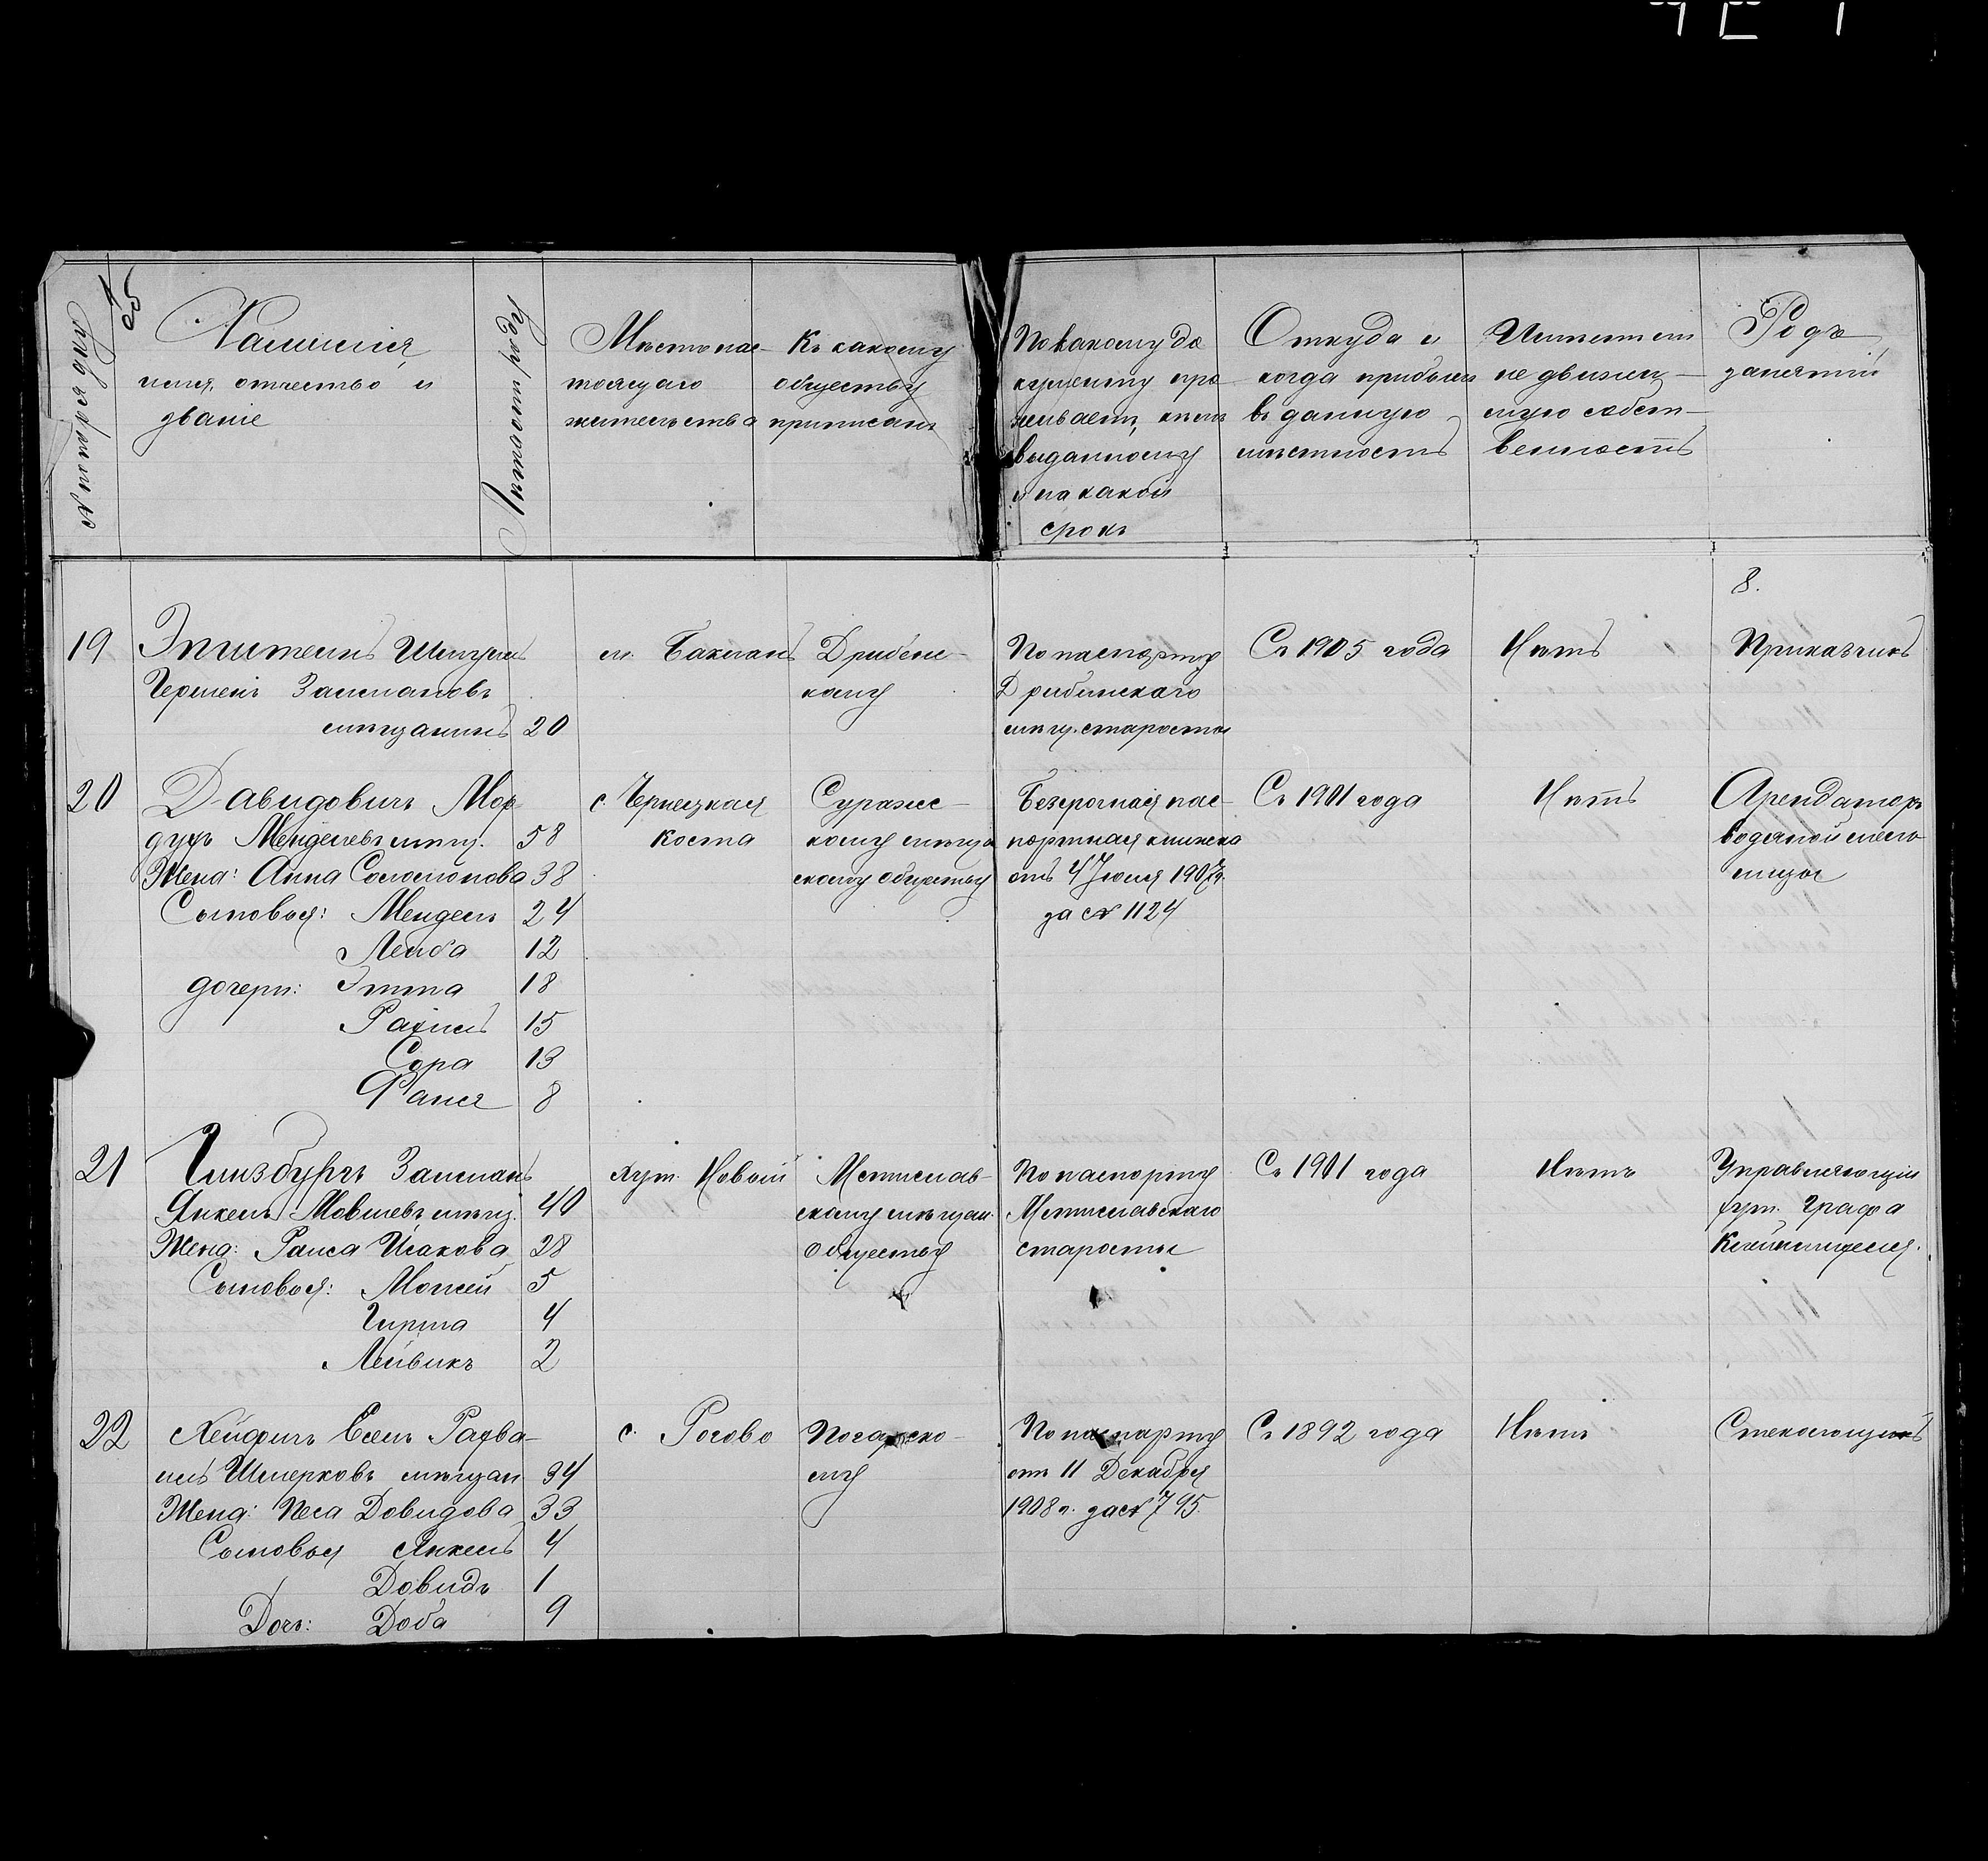 № по порядку
Фамилія
имя, отчество и
званіе
Лѣта отъ роду
Мѣсто нас-
тоящаго
жительства
Къ какому
обществу
приписанъ
По какому до
кументу про
живаетъ, кѣмъ
выданному
и на какой
срокъ
Откуда и
когда прибылъ
въ данную
мѣстность
Имѣетъ ли
недвижим-
мую собст-
венность
Родъ
занятій
8.
19
Эпштейнъ Шмуль
Гершенъ Залмановъ
мѣщанинъ 20
м. Бакланъ
Дрибенс-
кому
По паспорту
Дрибинскаго
мѣщ. старосты
Съ 1905 года
Нѣтъ
Приказчикъ
20
Давидовичъ Мор-
духъ Менделевъ мѣщ. 58
Жена: Анна Соломонова 38
Сыновья: Мендель 24
Лейба 12
дочери: Этта 18
Рахиль 15
Сора 13
Фаня 8
с. Чернецкая
Коста
Суражс-
кому мѣщан
скому обществу
Безсрочная пас-
портная книжка
отъ 4 Іюля 1907г.
за № 1124
Съ 1901 года
Нѣтъ
Арендаторъ
водяной мель-
ницы
21
Гинзбургъ Залманъ
Янкель Мовшевъ мѣщ. 40
Жена: Раиса Исакова 28
Сыновья: Мойсей 5
Гирша 4
Лейвикъ 2
хут. Новый
Мстислав-
скому мѣщан.
обществу
По паспорту
Мстиславскаго
старосты
Съ 1901 года
Нѣтъ
Управляющій
хут. Графа
Клейнмихеля.
22
Хейфичъ Есель Рахва-
иль Шмерковъ мѣщан 34
Жена: Песа Довидова 33
Сыновья Янкель 4
Довидъ 1
Дочь: Доба 9
с. Рогово
Погарско-
му
По паспарту
отъ 11 Декабря
1908 г. за № 795.
Съ 1892 года
Нѣтъ
Стекольщикъ